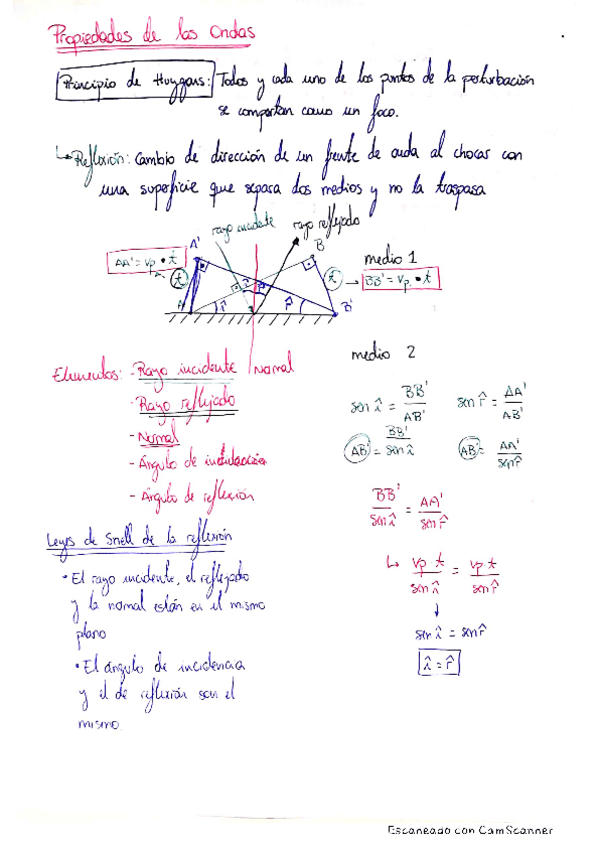 Propiedades de las Ondas
Principio de Huygens: Todos y cada uno de los puntos de la perturbación
se comportan como un foco.
↳ Reflexión: Cambio de dirección de un frente de onda al chocar con
una superficie que separa dos medios y no la traspasa
rayo incidente
rayo reflejado
A'
B
AA' = vp · t
t
t
medio 1
→ BB' = vp · t
A
î
î
r̂
r̂
B'
medio 2
Normal
Elementos: - Rayo incidente
- Rayo reflejado
- Normal
- Ángulo de
- Ángulo de reflexión
sen î = BB'/AB'
sen r̂ = AA'/AB'
AB' = BB'/sen î
AB' = AA'/sen r̂
BB'/sen î = AA'/sen r̂
↳ vp t/sen î = vp t/sen r̂
↓
sen î = sen r̂
î = r̂
Leyes de Snell de la reflexión
• El rayo incidente, el reflejado
y la normal están en el mismo
plano
• El ángulo de incidencia
y el de reflexión son el
mismo
Escaneado con CamScanner